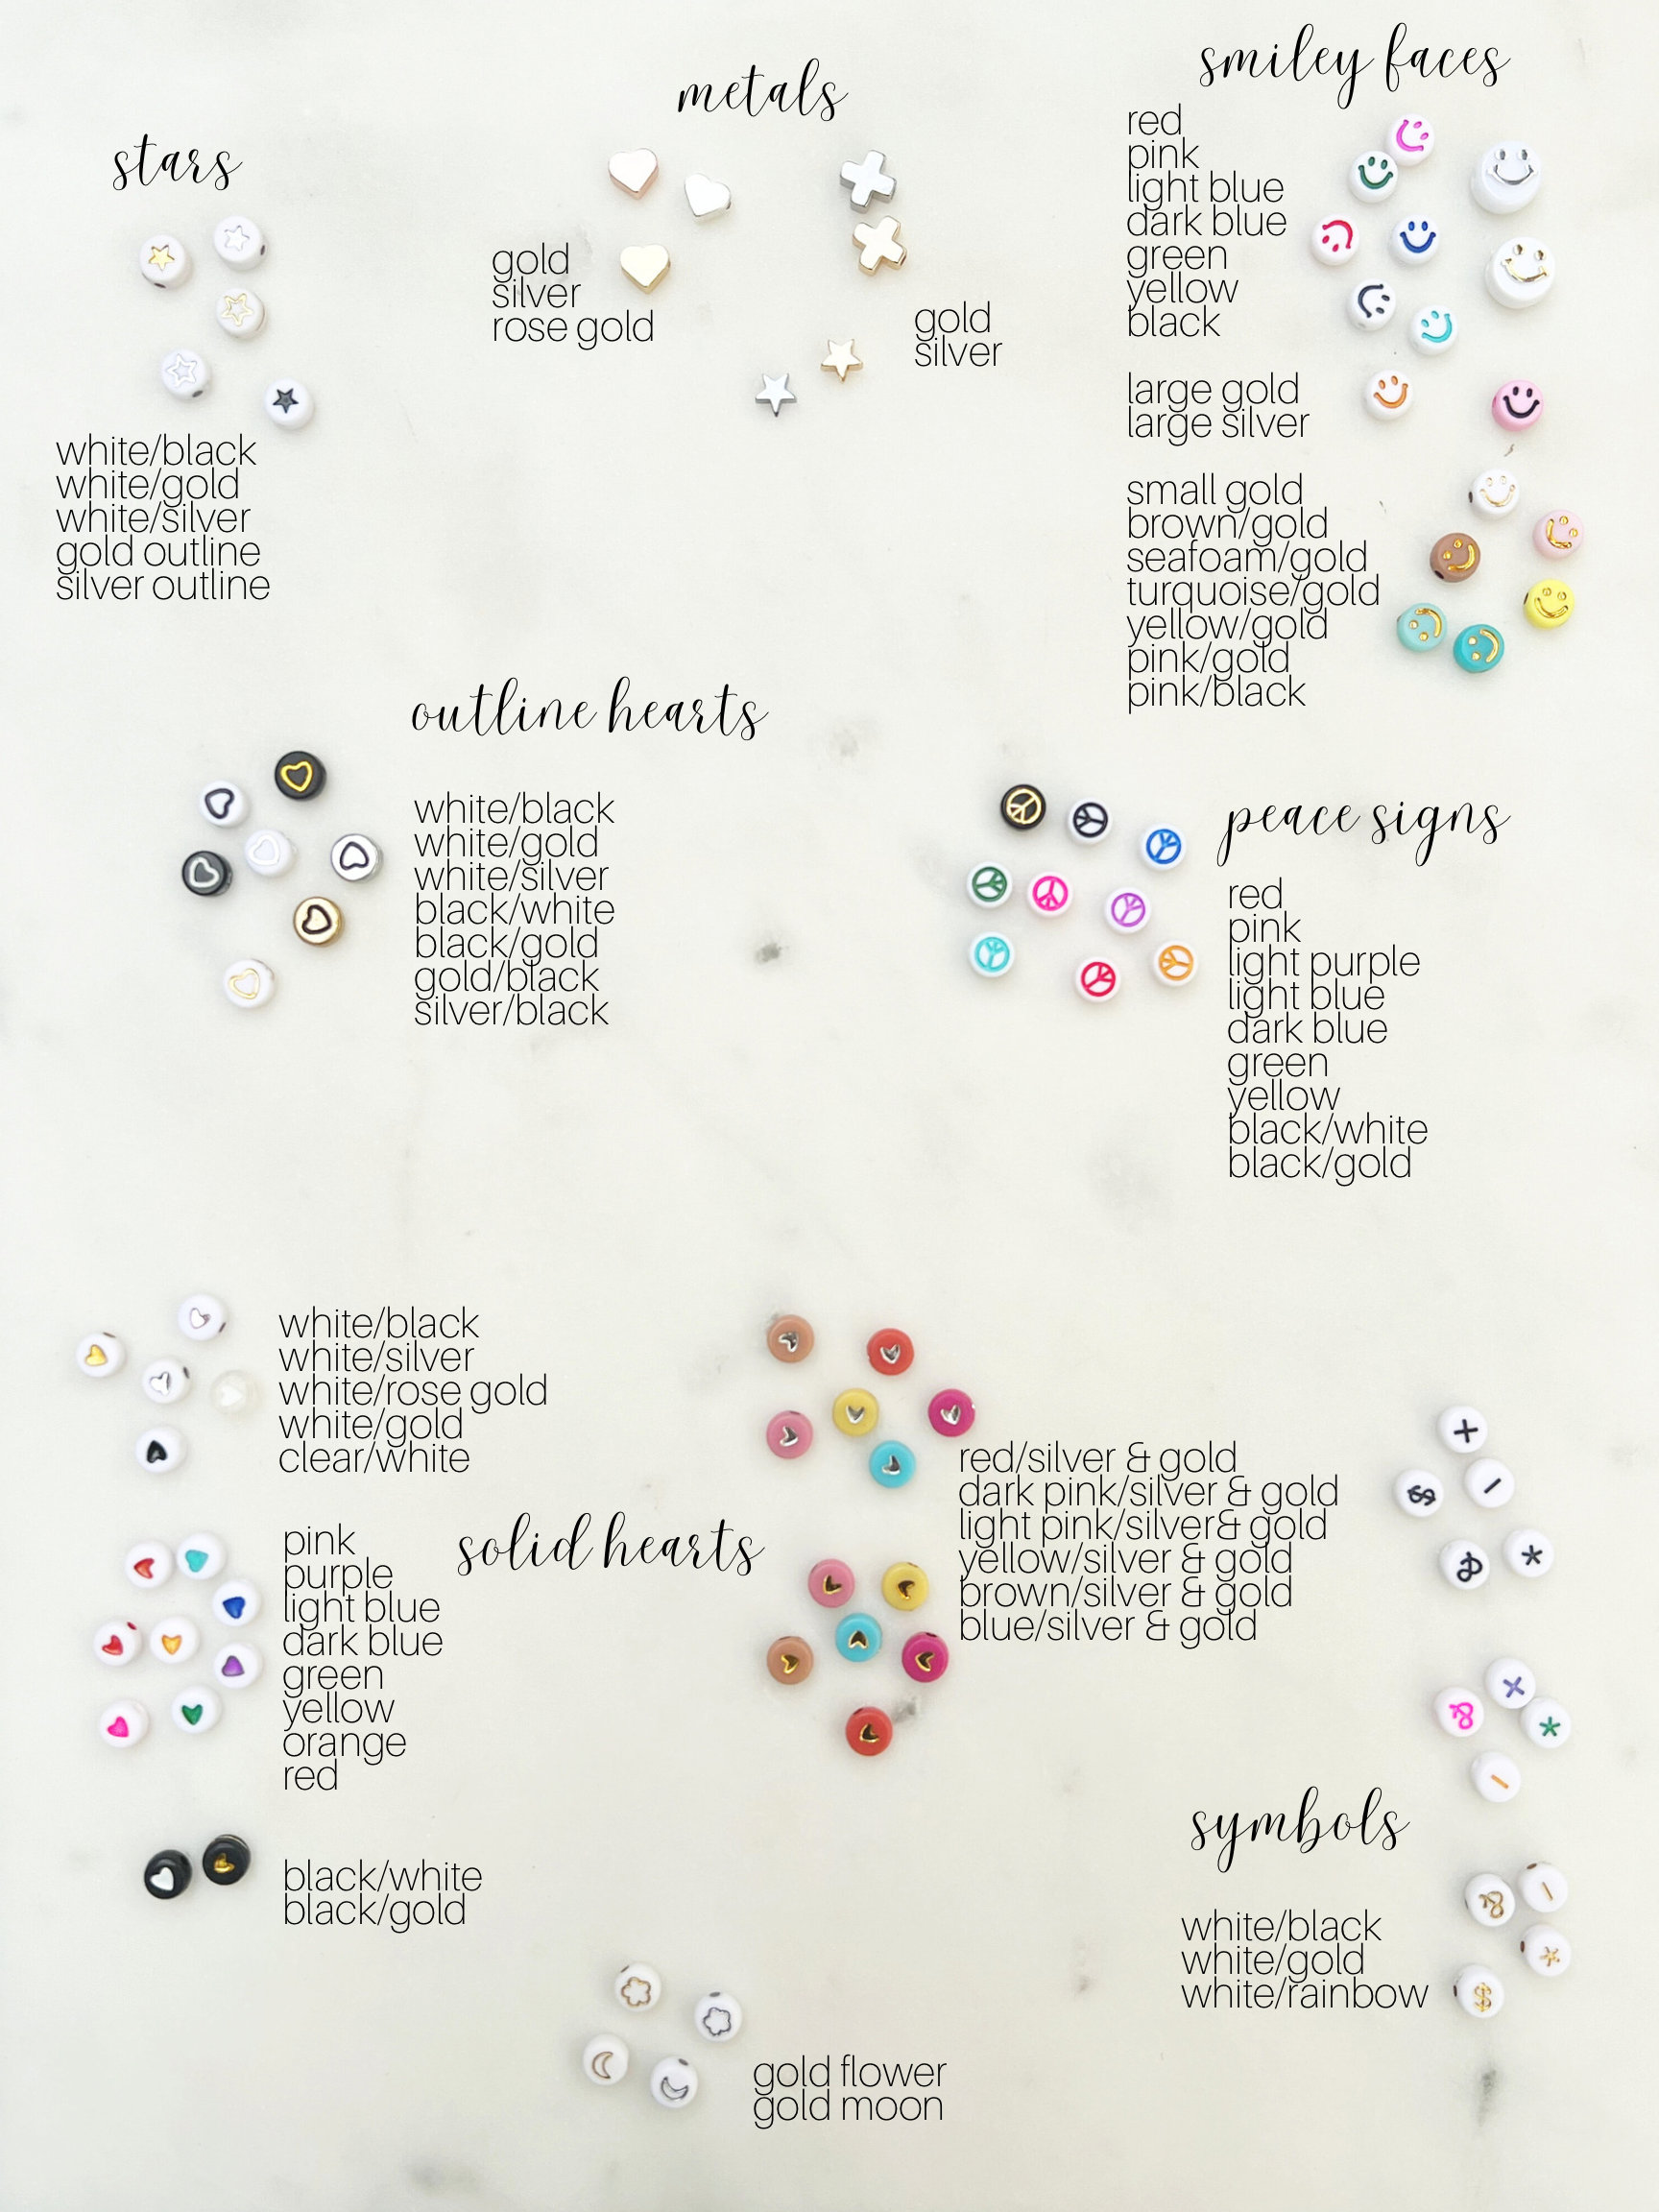 stars
white/black
white/gold
white/silver
gold outline
silver outline
metals
gold
silver
rose gold
gold
silver
smiley faces
red
pink
light blue
dark blue
green
yellow
black
large gold
large silver
small gold
brown/gold
seafoam/gold
turquoise/gold
yellow/gold
pink/gold
pink/black
outline hearts
white/black
white/gold
white/silver
black/white
black/gold
gold/black
silver/black
peace signs
red
pink
light purple
light blue
dark blue
green
yellow
black/white
black/gold
white/black
white/silver
white/rose gold
white/gold
clear/white
solid hearts
pink
purple
light blue
dark blue
green
yellow
orange
red
black/white
black/gold
red/silver & gold
dark pink/silver & gold
light pink/silver& gold
yellow/silver & gold
brown/silver & gold
blue/silver & gold
+
$ -
& *
& +
*
-
symbols
white/black
white/gold
white/rainbow
& -
*
$
gold flower
gold moon